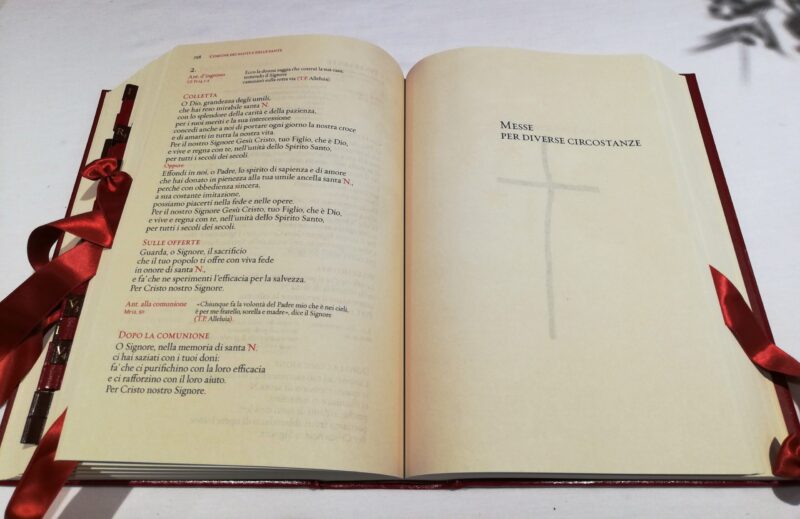 798 Comune dei santi e delle sante
2.
Ant. d'ingresso Ecco la donna saggia che costruì la sua casa;
temendo il Signore
camminò sulla retta via (T.P. Alleluia).
Colletta
O Dio, grandezza degli umili,
che hai reso mirabile santa N.
con lo splendore della carità e della pazienza,
per i suoi meriti e la sua intercessione
concedi anche a noi di portare ogni giorno la nostra croce
e di amarti in tutta la nostra vita.
Per il nostro Signore Gesù Cristo, tuo Figlio, che è Dio,
e vive e regna con te, nell'unità dello Spirito Santo,
per tutti i secoli dei secoli.
Oppure
Effondi in noi, o Padre, lo spirito di sapienza e di amore
che hai donato in pienezza alla tua umile ancella santa N.,
perché con obbedienza sincera,
a sua costante imitazione,
possiamo piacerti nella fede e nelle opere.
Per il nostro Signore Gesù Cristo, tuo Figlio, che è Dio,
e vive e regna con te, nell'unità dello Spirito Santo,
per tutti i secoli dei secoli.
Sulle offerte
Guarda, o Signore, il sacrificio
che il tuo popolo ti offre con viva fede
in onore di santa N.,
e fa' che ne sperimenti l'efficacia per la salvezza.
Per Cristo nostro Signore.
Ant. alla comunione «Chiunque fa la volontà del Padre mio che è nei cieli,
Mt 12, 50 è per me fratello, sorella e madre», dice il Signore
(T.P. Alleluia).
Dopo la comunione
O Signore, nella memoria di santa N.
ci hai saziati con i tuoi doni:
fa' che ci purifichino con la loro efficacia
e ci rafforzino con il loro aiuto.
Per Cristo nostro Signore.
Messe
per diverse circostanze